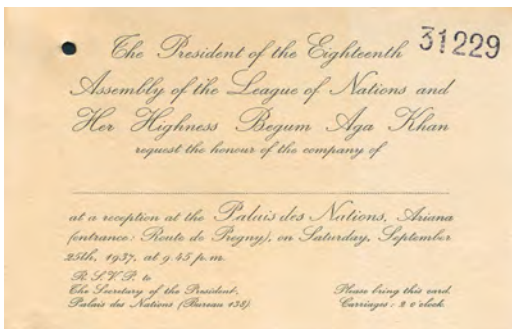 The President of the Eighteenth 31229
Assembly of the League of Nations and
Her Highness Begum Aga Khan
request the honour of the company of
at a reception at the Palais des Nations, Ariana
(entrance: Route de Pregny), on Saturday, September
25th, 1937, at 9.45 p.m.
R.S.V.P. to
The Secretary of the President,
Palais des Nations (Bureau 138)
Please bring this card.
Carriages: 2 o'clock.